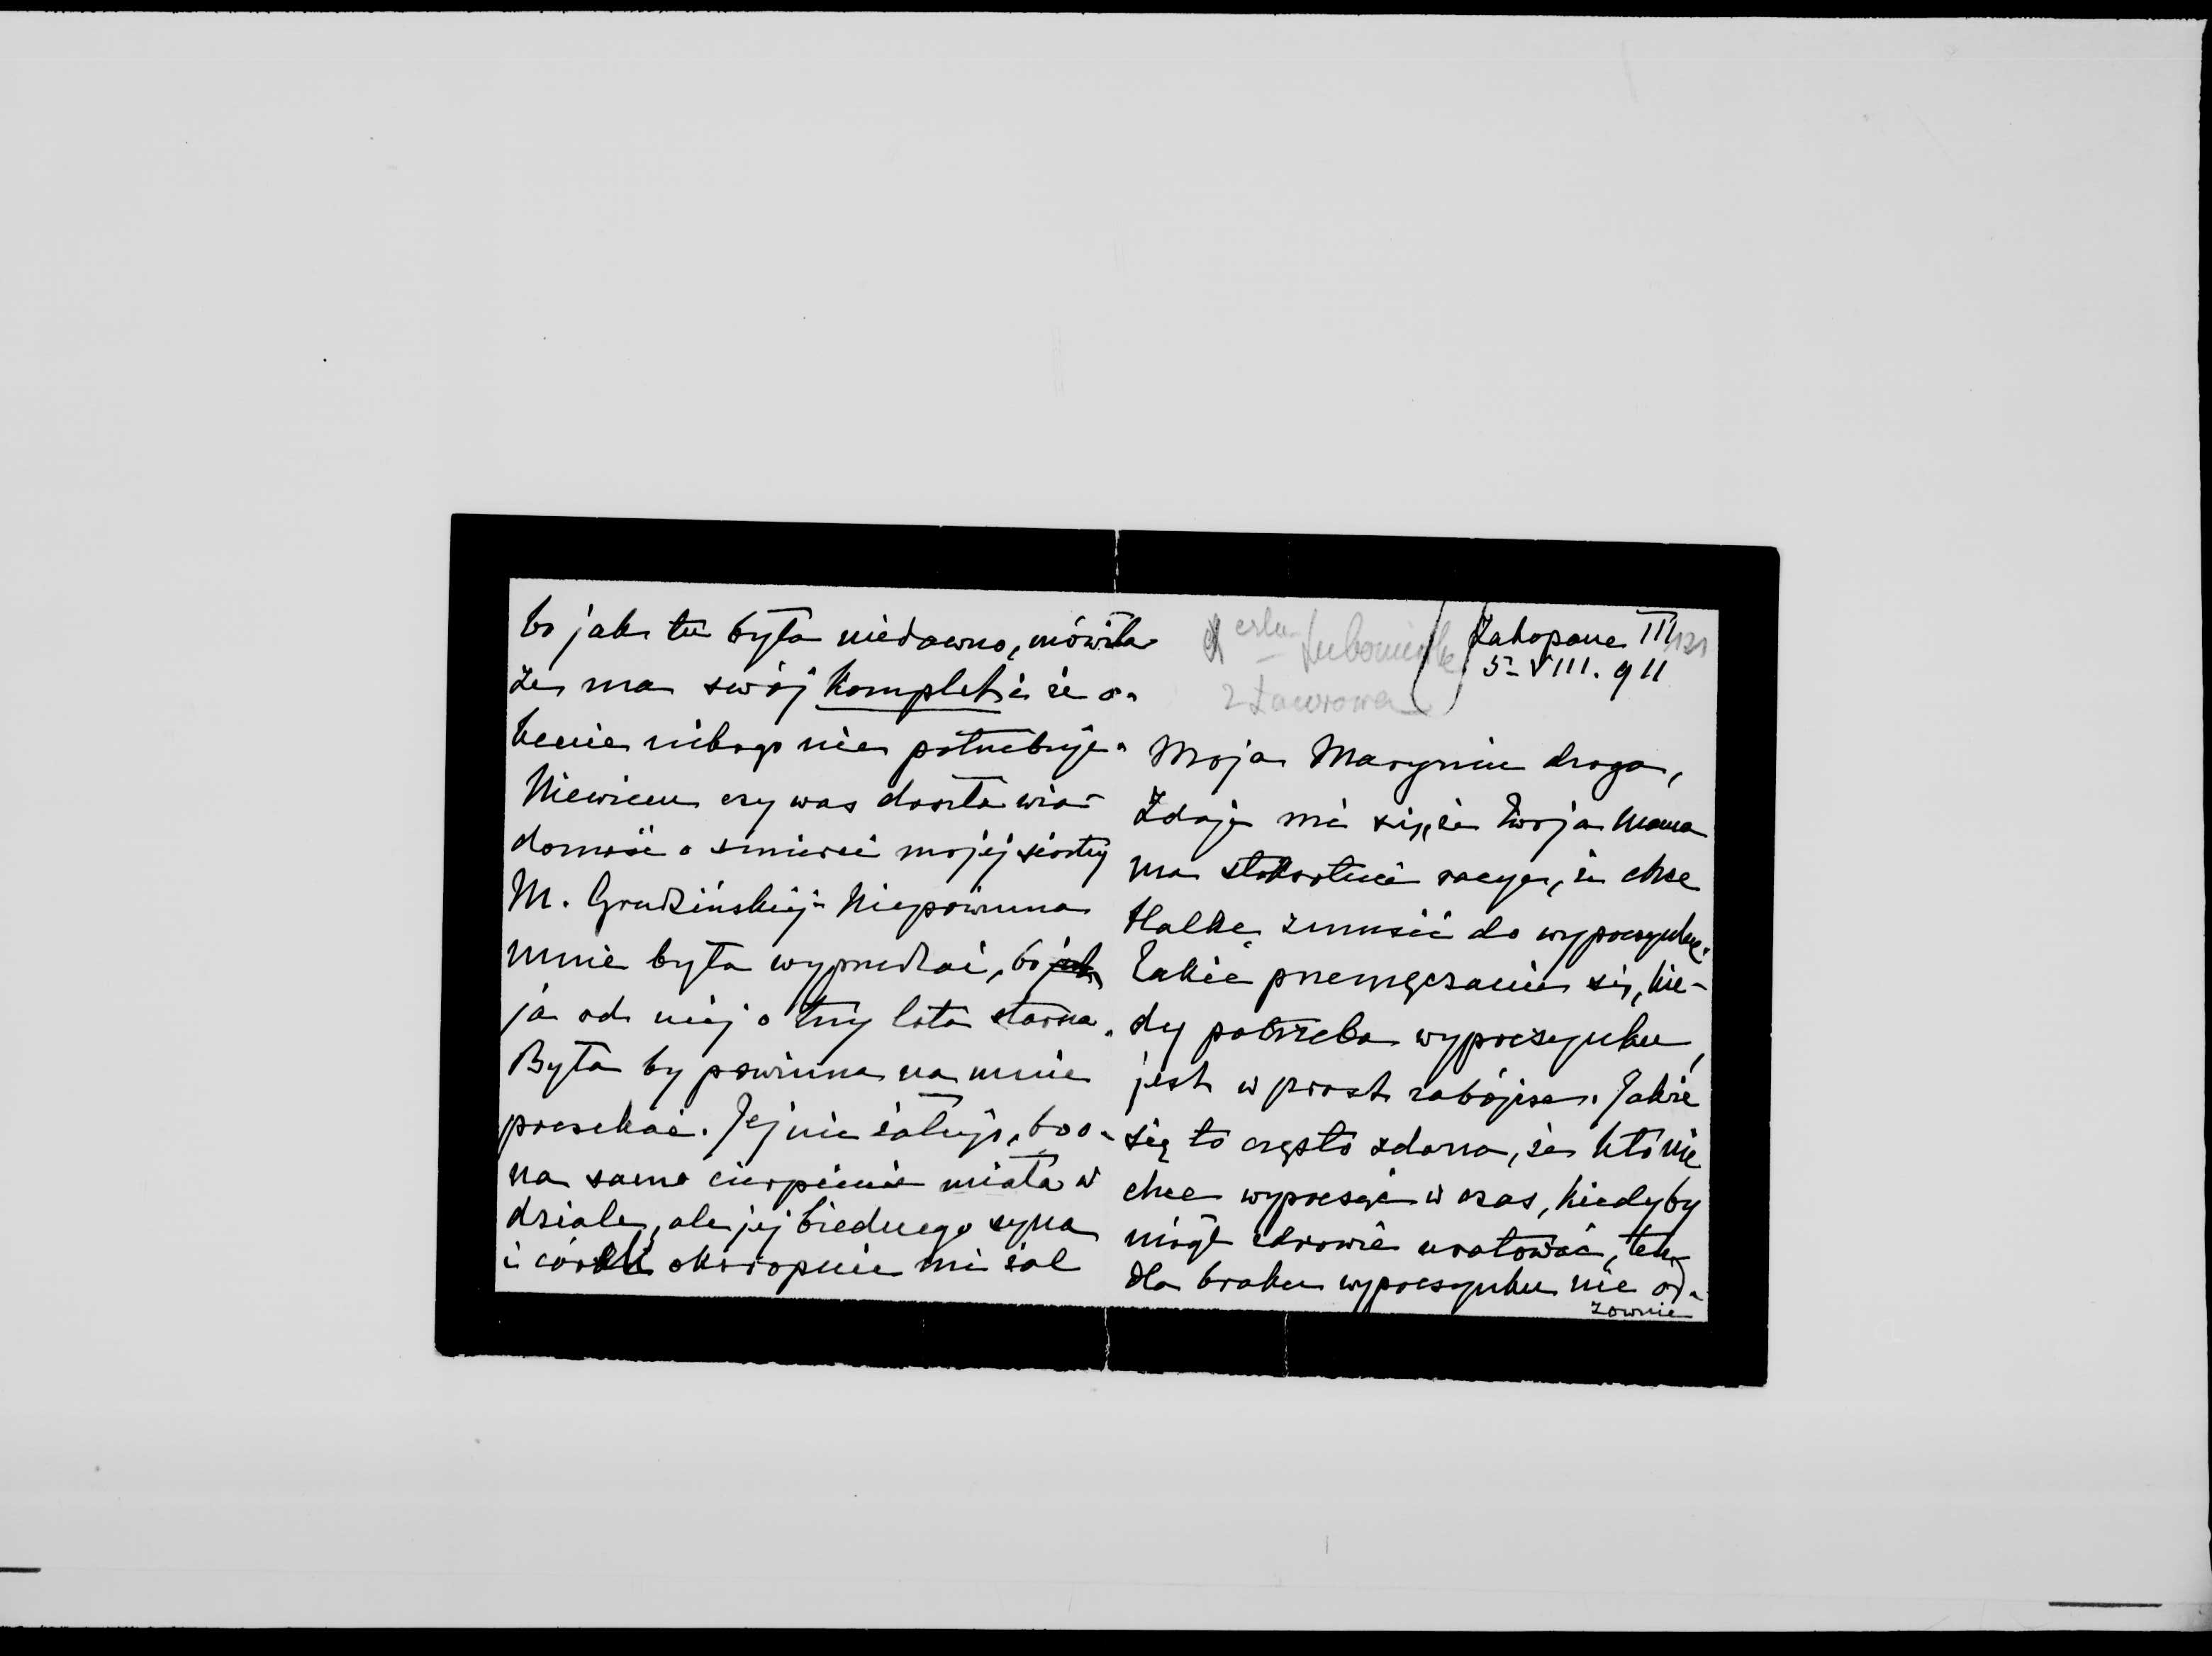 bo jak tu była niedawno, mówiła
że ma swój komplet i że o-
becnie nikogo nie potrzebuje.
Niewiem czy was doszła wia-
domość o śmierci mojej siostry
M. Grudzińskiej. Niepowinna
mnie była wyprzedzać, bo
ja od niej o trzy lata starsza.
Była by powinna na mnie
poczekać. Jej nie żałuję, bo o-
na same cierpienie miała w
dziale, ale jej biednego syna
i córki okropnie mi żal
Lubomirski
z Ławrowa
Zakopane III 121
5 VIII. 911
Moja Maryniu droga,
Zdaje mi się, że Twoja Mama
ma stokrotnie racye, że chce
Halkę zmusić do wypoczynku.
Takie przemęczanie się, kie-
dy potrzeba wypoczynku,
jest w prost zabójcze. Jakże
się to często zdarza, że kto nie
chce wypocząć w czas, kiedyby
mógł zdrowie uratować, ten
dla braku wypoczynku nie od-
zownie